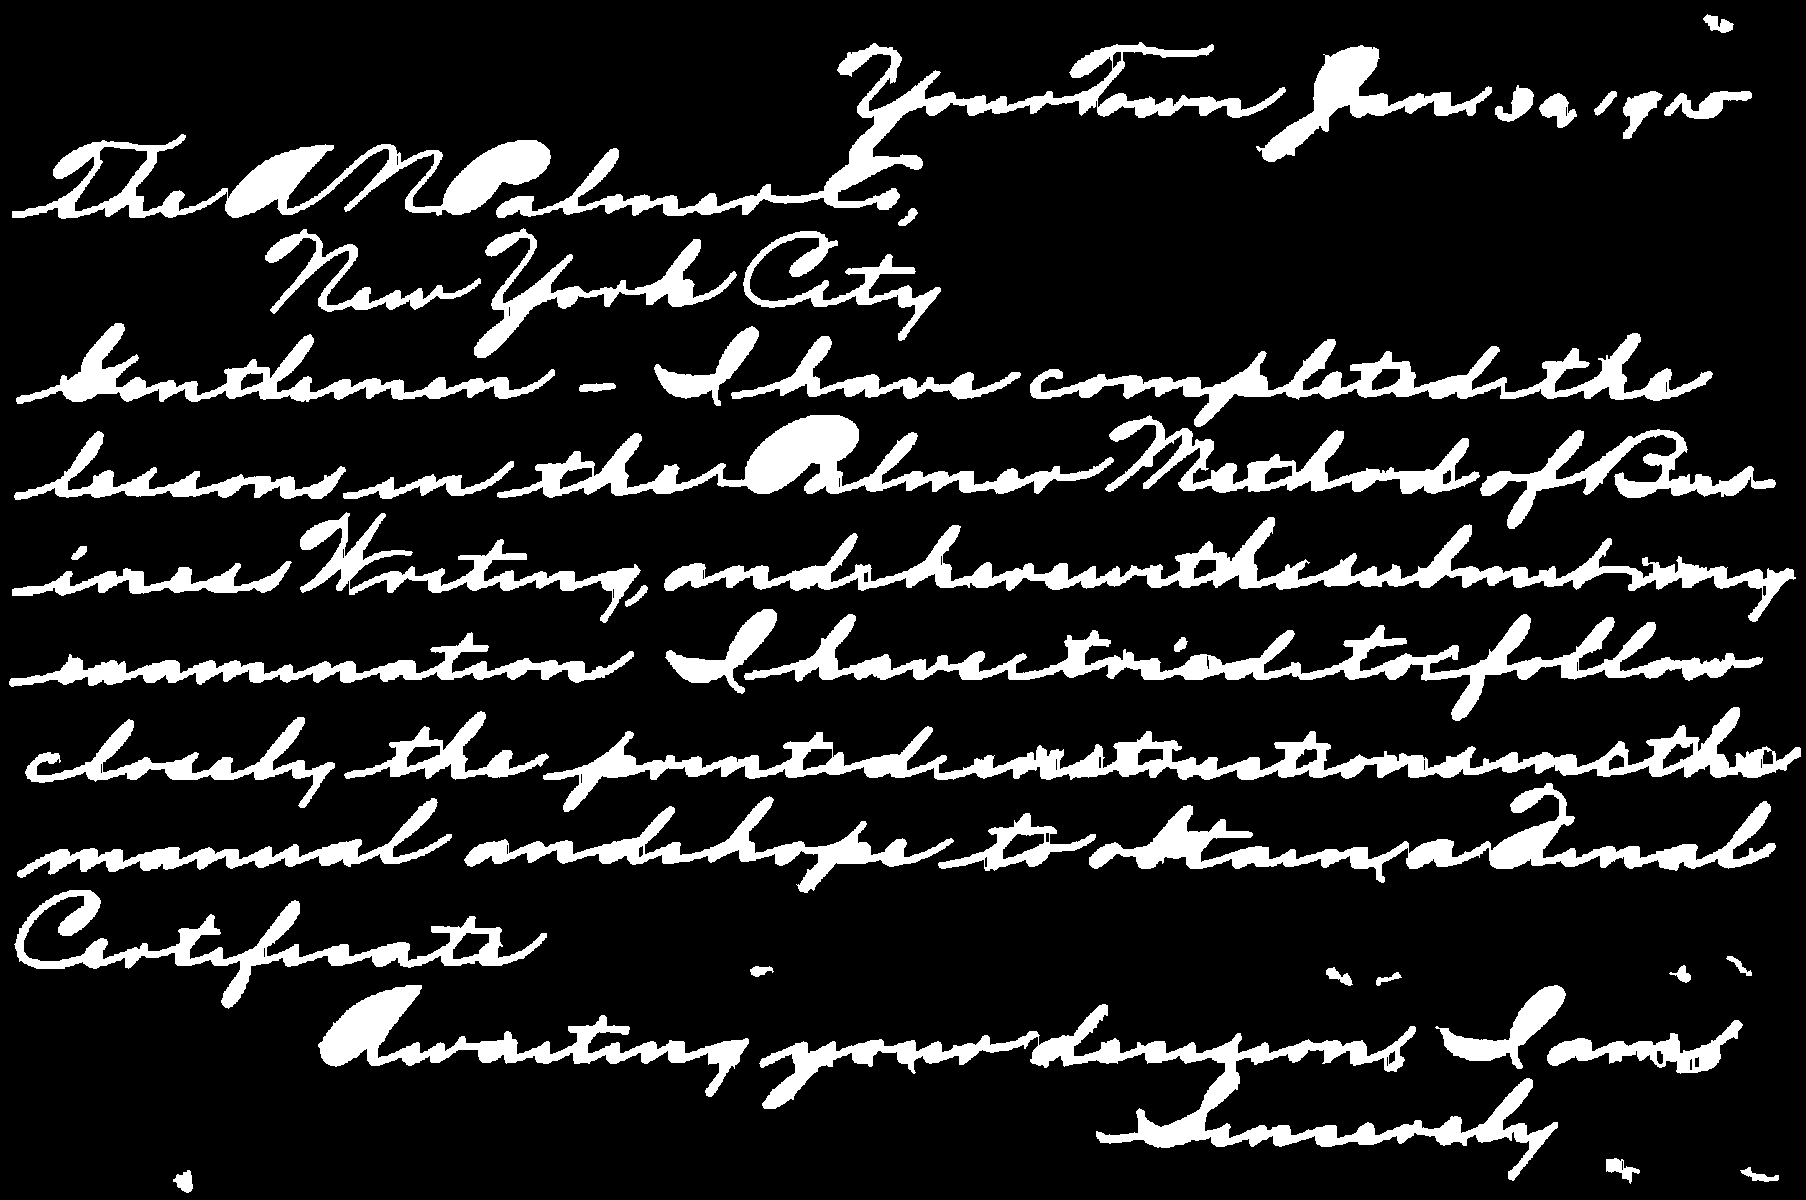 Your Town Jan. 30, 1915
The A N Palmer Co,
New York City
Gentlemen - I have completed the
lessons in the Palmer Method of Bus-
iness Writing, and herewith submit my
examination I have tried to follow
closely the printed instructions in the
manual and hope to obtain a Final
Certificate
Awaiting your decision, I am
Sincerely